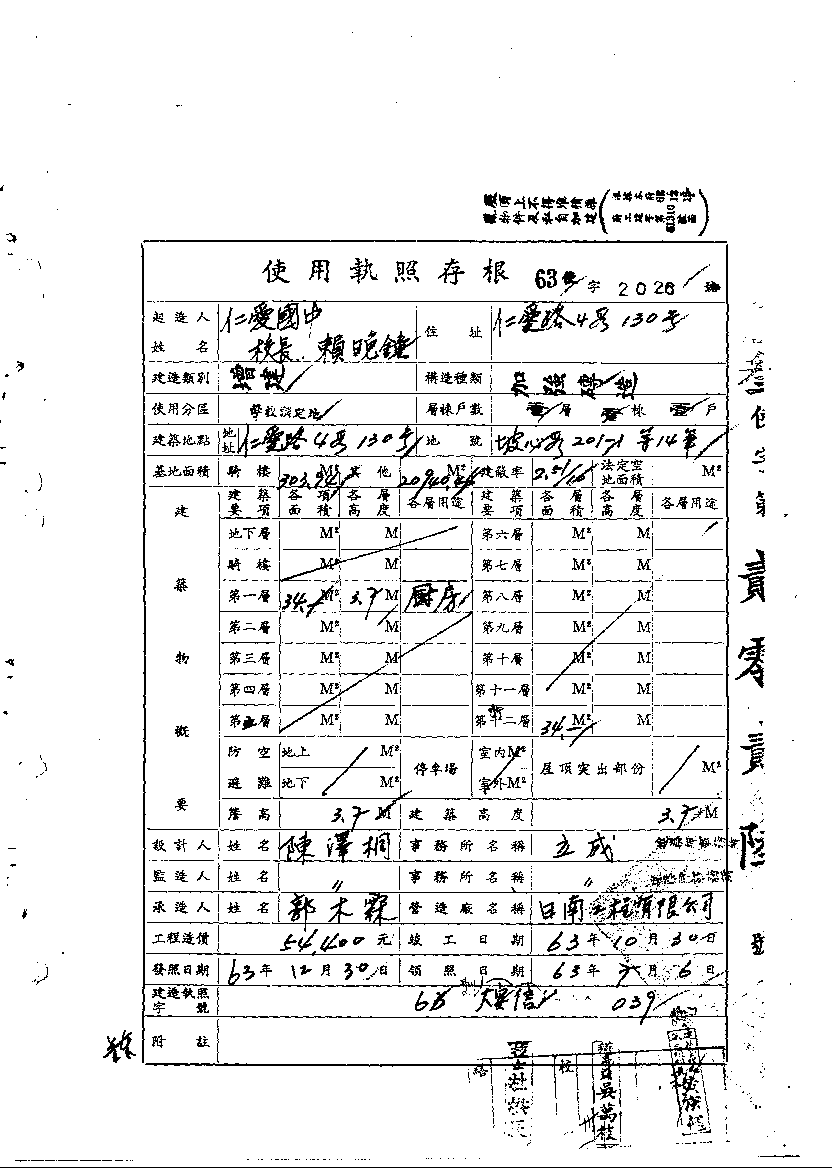 使用執照存根 63 字 2026 號
起造人姓名 仁愛國中 校長 賴晚鐘 住址 仁愛路4段130号
建造類別 增建 構造種類 加強磚造
使用分區 層棟戶數 壹層 壹棟 壹戶
建築地點 地址 仁愛路4段130号 地號 坡心段201-1等14筆
基地面積 騎樓 M² 其他 M² 建蔽率 法定空地面積 M²
建築物概要
建築要項 各項面積 各層高度 各層用途 建築要項 各層面積 各層高度 各層用途
地下層 M² M 第六層 M² M
騎樓 M² M 第七層 M² M
第一層 M² 3.7 M 厨房 第八層 M² M
第二層 M² M 第九層 M² M
第三層 M² M 第十層 M² M
第四層 M² M 第十一層 M² M
第五層 M² M 第十二層 M² M
防空避難 地上 M² 停車場 室內M² 屋頂突出部份 M²
地下 M² 室外M²
簷高 3.7 M 建築高度 3.7 M
設計人 姓名 陳澤桐 事務所名稱 立成
監造人 姓名 〃 事務所名稱 〃
承造人 姓名 郭木霖 營造廠名稱
工程造價 54,400元 竣工日期 63年10月30日
發照日期 63年12月30日 領照日期 63年 月6日
建造執照字號 039
附註
貳零貳陸